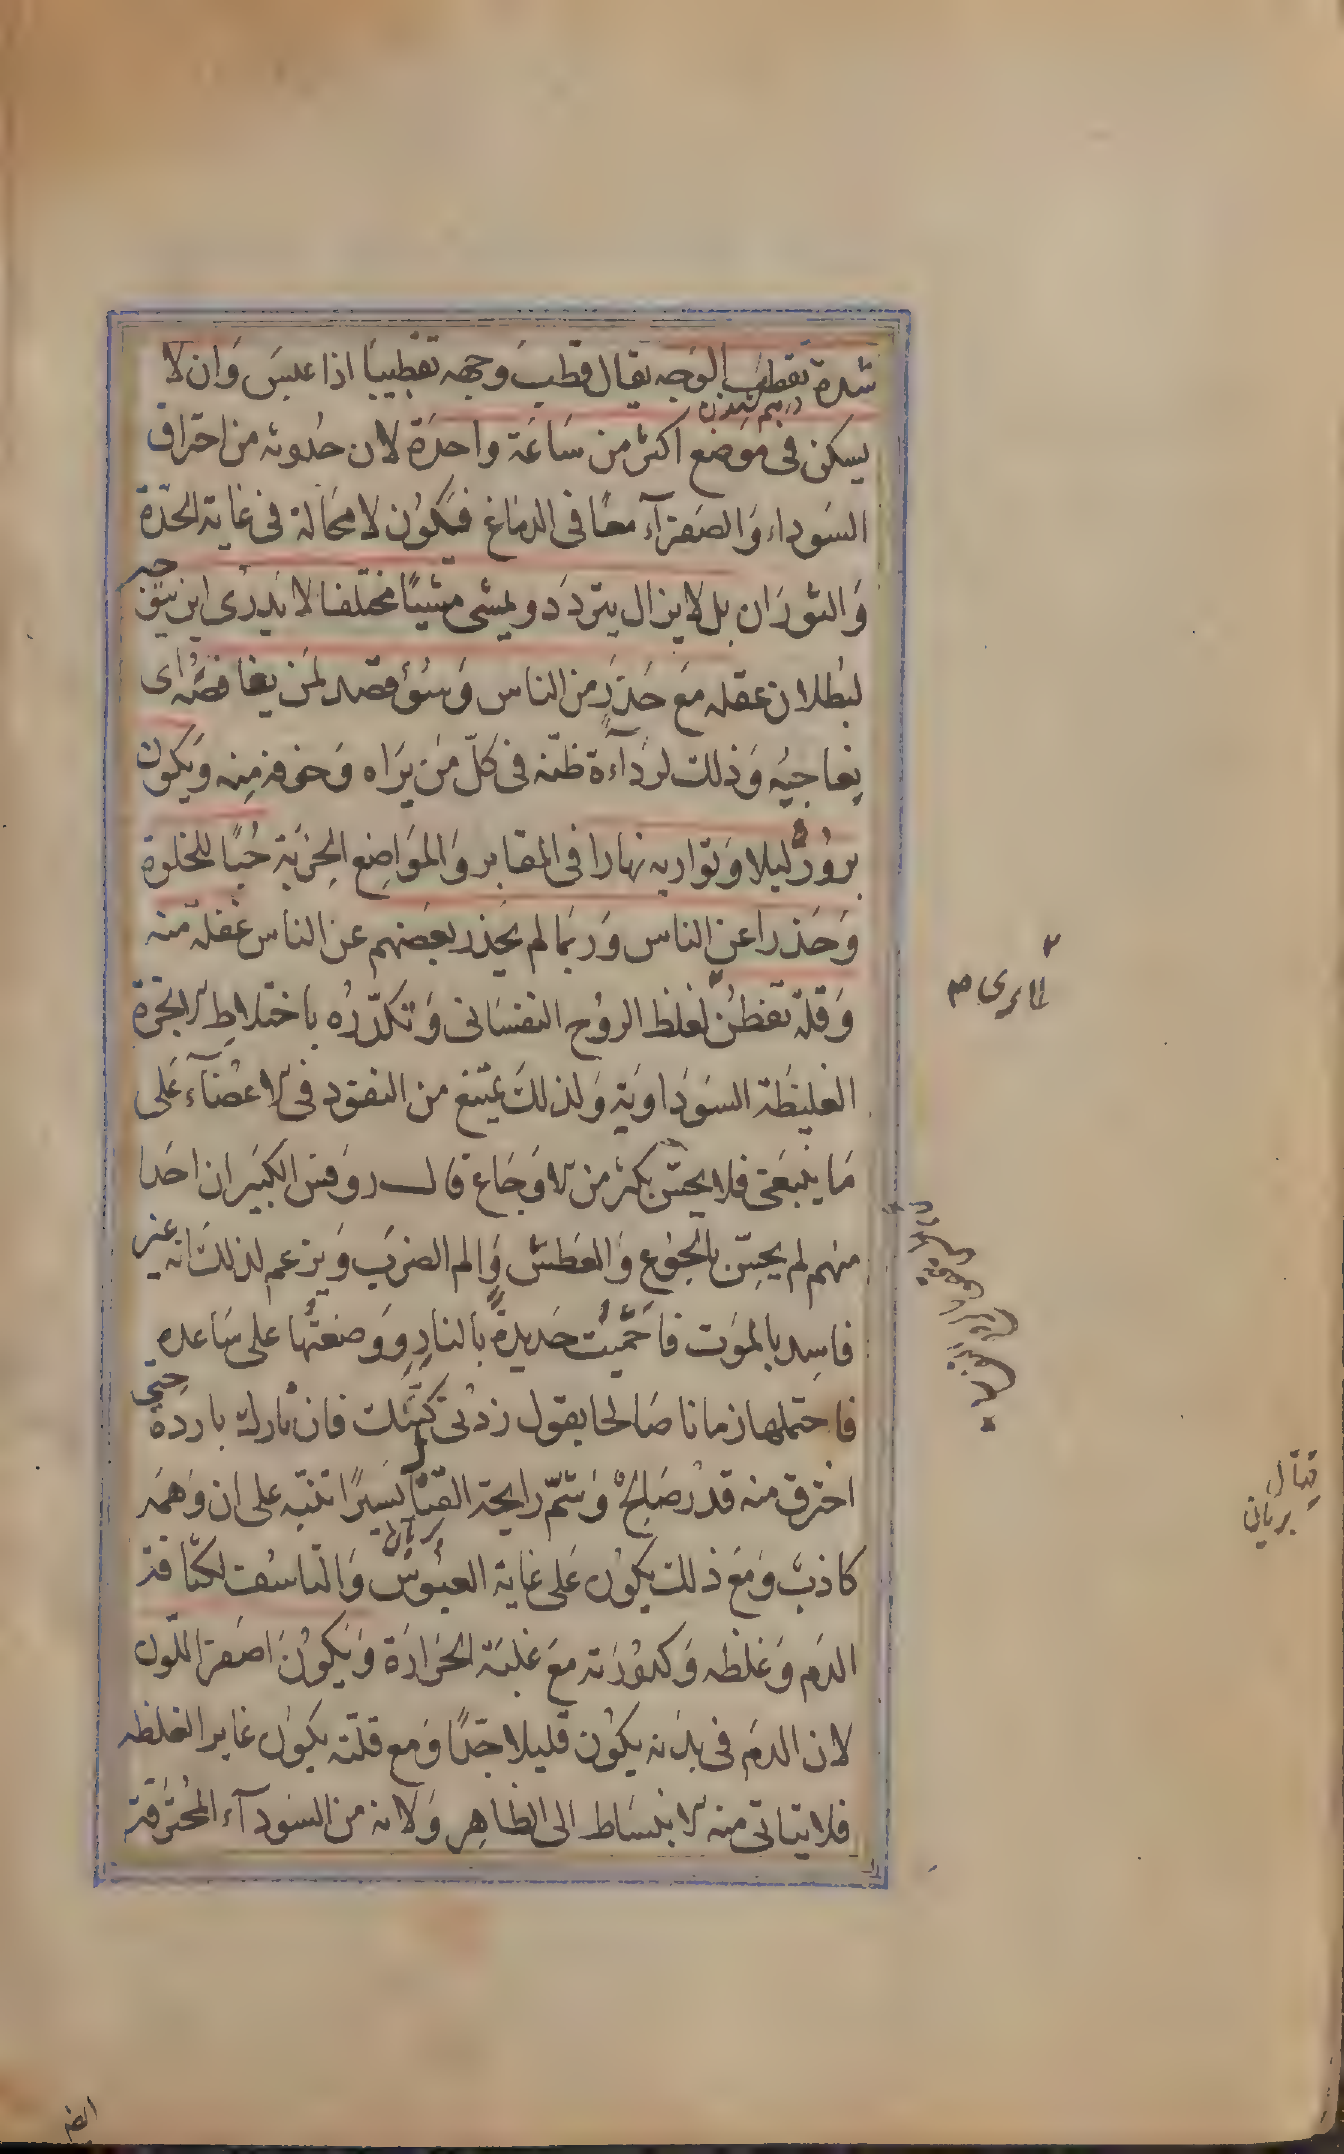 شدة تقطيب الوجه يقال قطب وجهه تقطيبا اذا عبس وان لا
يسكن فى موضع اكثر من ساعة واحدة لان حدوثه من احتراق
السوداء والصفرآء معا فى الدماغ فيكون لا محالة فى غاية الحدة
والثوران بل لا يزال يتردد ويمشى مشيا مختلفا لا يدرى اين يتوجه
لبطلان عقله مع حذر من الناس وسوء قصد لمن يغافصه اى
يفاجيه وذلك لردآءة ظنه فى كل من يراه وخوفه منه ويكون
بروزه ليلا وتواريه نهارا فى المقابر والمواضع الخربة حبا للخلوة
وحذرا عن الناس وربما لم يحذر بعضهم عن الناس غفلة منه
وقلة تفطن لغلظ الروح النفسانى وتكدره باختلاط الابخرة
الغليظة السوداوية ولذلك يمتنع من النفوذ فى الاعضآء على
ما ينبغى فلا يحس بكثير من الاوجاع قال روفس الكبير ان احدا
منهم لم يحس بالجوع والعطش والم الضرب ويزعم لذلك انه غير
فاسد بالموت فاحميت حديدة بالنار ووضعتها على ساعده
فاحتملها زمانا صالحا يقول زدنى فان نارك باردة حتى
احترق منه قدر صالح وشم رايحة القتار يسيرا تنبه على ان وهمه
كاذب ومع ذلك يكون على غاية العبوس والتاسف لكثافة
الدم وغلظه وكدورته مع غلبة الحرارة ويكون اصفر اللون
لان الدم فى بدنه يكون قليلا جدا ومع قلته يكون غاير الغلظه
فلا يتاتى منه الانبساط الى الظاهر ولانه من السودآء المحترقة
قتال
بريان